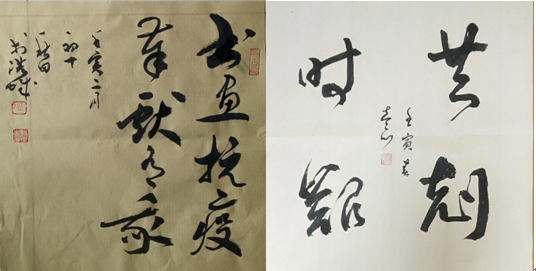 书画抗疫
奉献有我
壬寅二月
初十
共剋
时艱
壬寅春